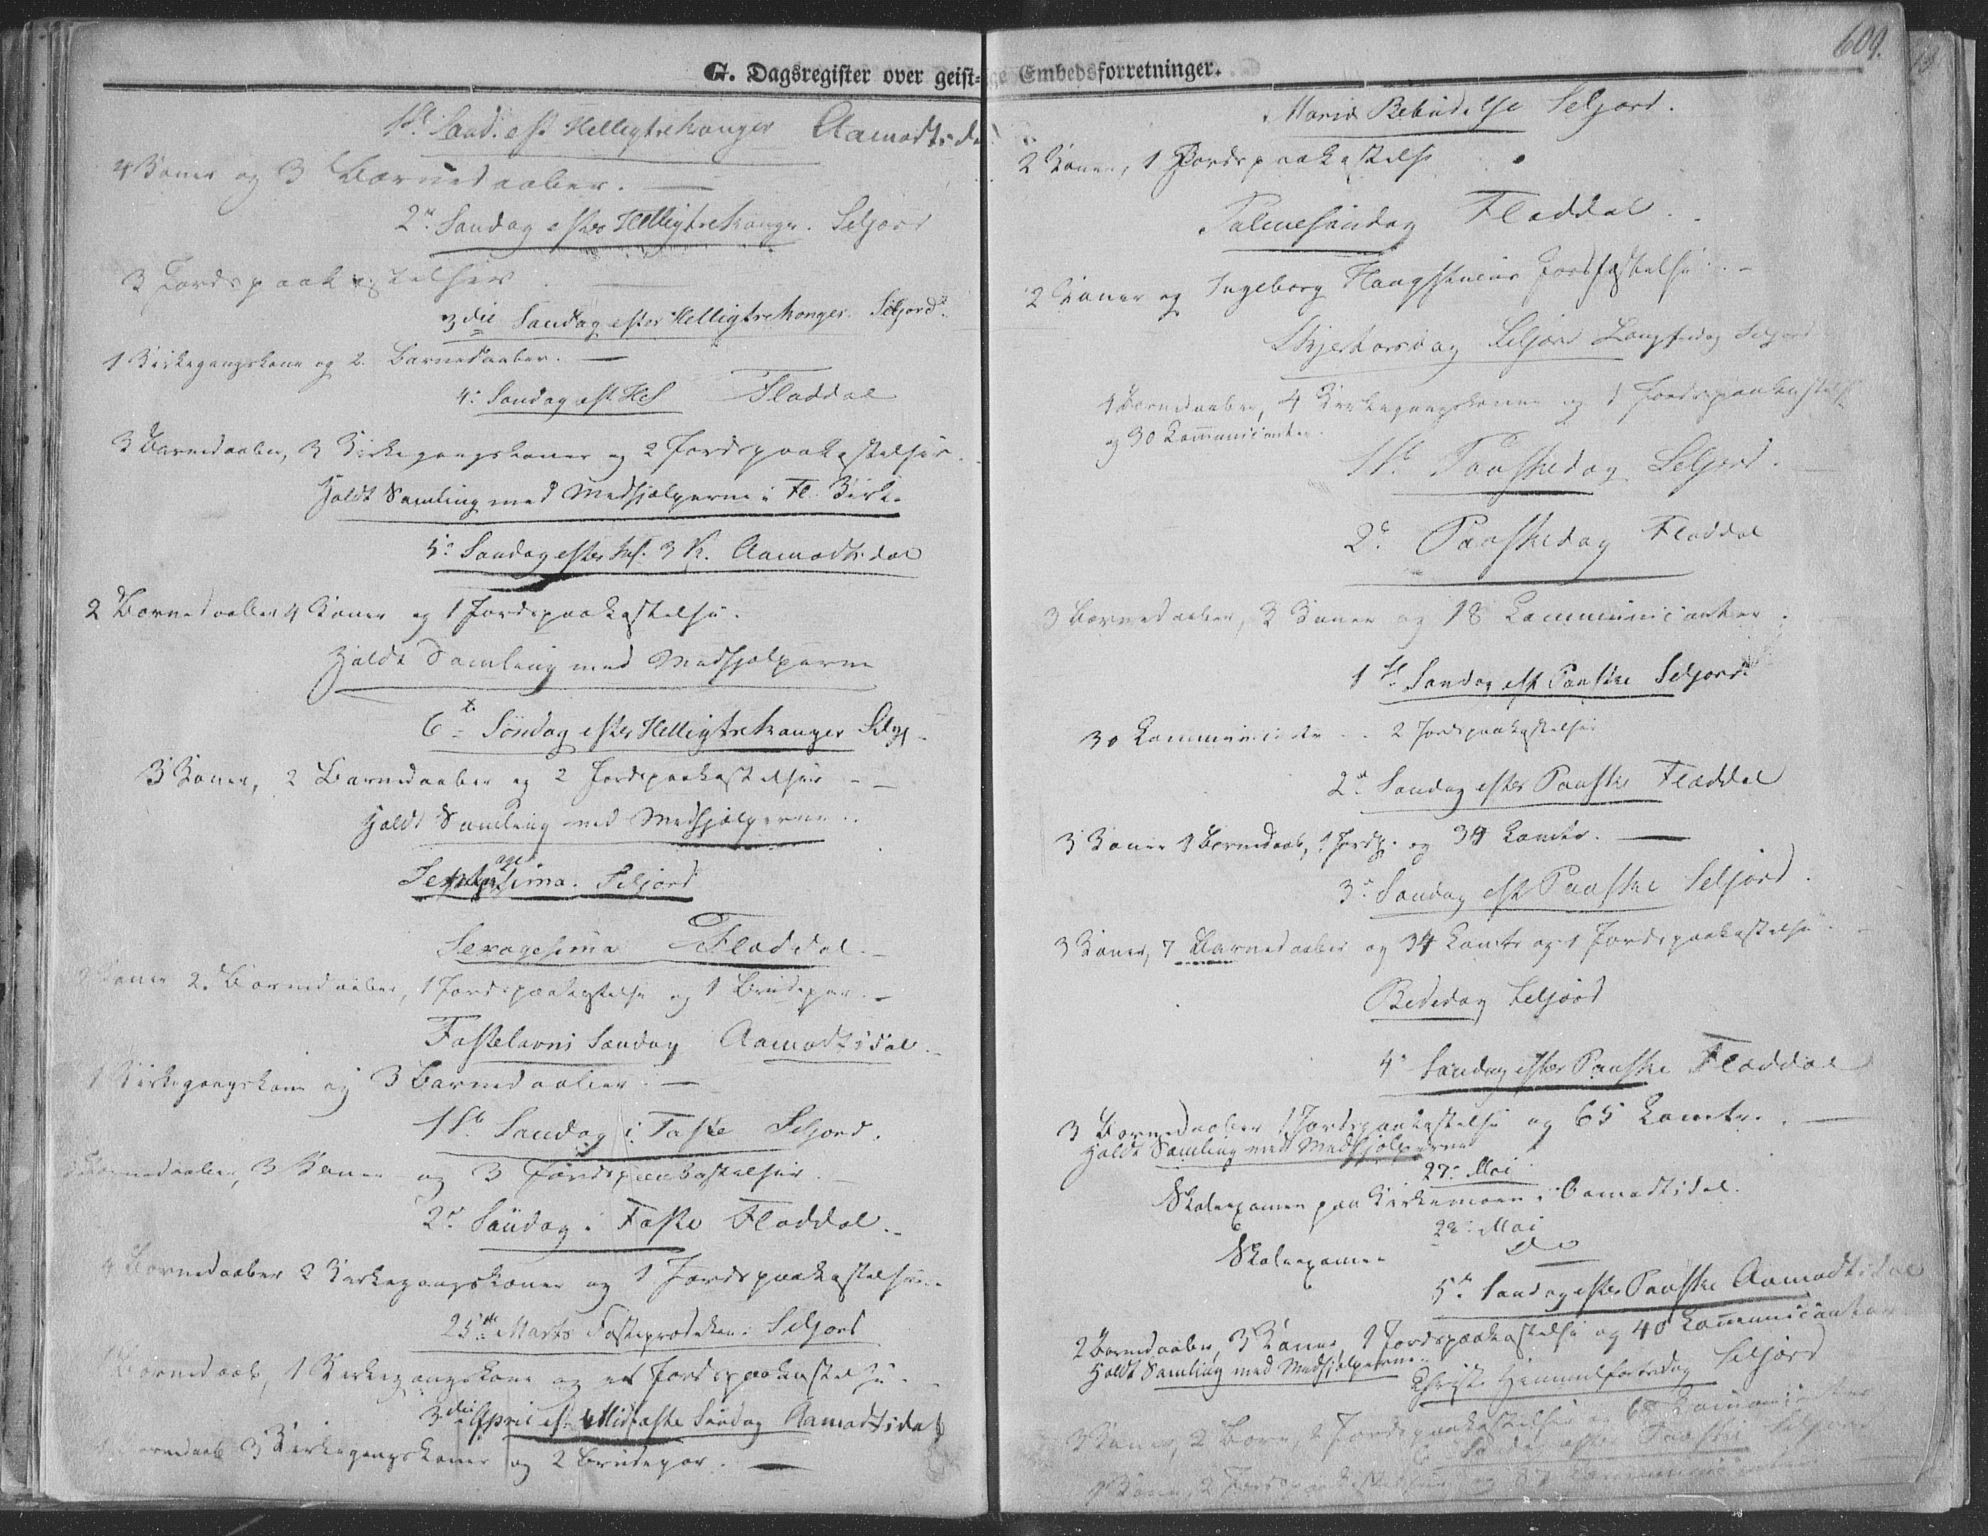 G. Dagsregister over geist-
1ste Sønd. eft Helligtrekonger Aamodtsdal
4 Koner og 3 Barnedaaber.
2n Søndag efter Helligtrekonger. Seljord
3 Jordspaakastelser
3die Søndag efter Helligtrekonger. Seljord.
1 Kirkegangskone og 2 Barnedaaber.
4. Søndag eft H3K Fladdal
3 Barnedaaber, 3 Kirkegangskoner og 2 Jordspaakastelser.
Holdt Samling med Medhjælperne i Fl. Kirke
5. Søndag efter H. 3 K. Aamodtsdal
2 Barnedaaber 4 Koner og 1 Jordspaakastelse.
Holdt Samling med Medhjælperne
6te Søndag efter Helligtrekonger Selj.
3 Koner, 2 Barnedaaber og 2 Jordspaakastelser
Holdt Samling med Medhjælperne.
Septuagesima. Seljord
Sexagesima Fladdal.
Koner 2 Barnedaaber, 1 Jordspaakastelse og 1 Brudepar.
Fastelavns Søndag Aamodtsdal.
1 Kirkegangskone og 3 Barnedaaber.
1ste Søndag i Faste Seljord.
Barnedaaber, 3 Koner og 3 Jordspaakastelser.
2n Søndag i Faste Fladdal.
4 Barnedaaber 2 Kirkegangskoner og 1 Jordspaakastelse.
25de Marts Fasteprædiken i Seljord
1 Barnedaab, 1 Kirkegangskone og en Jordspaakastelse.
3die April eft. Midfaste Søndag Aamodtsdal
Barnedaab 3 Kirkegangskoner og 2 Brudepar.
609.
ge Embedsforretninger.
Mariæ Bebudelse Seljord.
2 Koner, 1 Jordspaakastelse
Palmesøndag Fladdal.
2 Koner og Ingeborg Jordfæstelse
Skjertorsdag Seljord Langfredag Seljord
4 Barnedaaber, 4 Kirkegangskoner og 1 Jordspaakastelse
og 30 Communicanter.
1ste Paaskedag Seljord.
2n Paaskedag Fladdal
3 Barnedaaber, 3 Koner og 18 Communicanter.
1ste Søndag eft Paaske Seljord
30 Communicanter 2 Jordspaakastelser
2n Søndag efter Paaske Fladdal
3 Koner 1 Barnedaab, 1 Jordp. og 34 Comtr.
3n Søndag eft Paaske Seljord.
3 Koner, 7 Barnedaaber og 34 Comtr og 1 Jordspaakastelse
Bededag Seljord
4n Søndag efter Paaske Fladdal
3 Barnedaaber 1 Jordspaakastelse og 65 Comtr.
Holdt Samling med Medhjælperne
27. Mai
Skoleexamen paa Kirkemoen i Aamodtsdal.
28. Mai
Skoleexamen do
5te Søndag efter Paaske Aamodtsdal
2 Barnedaaber, 3 Koner, 1 Jordspaakastelse og 40 Communicanter
Holdt Samling med Medhjælperne.
Christi Himmelfartsdag Seljord
3 Koner, 2 Børn, 2 Jordspaakastelser 68 Communicanter
6 Søndag efter Paaske Seljord
Koner, 2 Jordspaakastelser og Communicanter